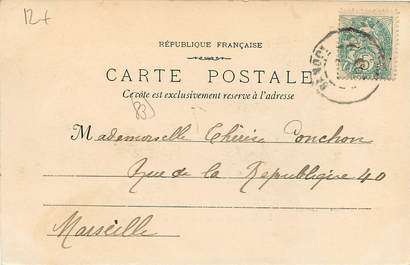 12+
RÉPUBLIQUE FRANÇAISE
CARTE POSTALE
Ce côté est exclusivement réservé à l'adresse
83
Mademoiselle Chérise Ponchon
Rue de la République 40
Marseille